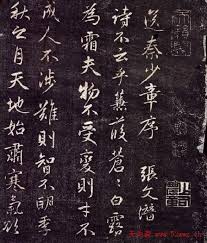 送秦少章序 張文潛
詩不云乎蒹葭蒼〻白露
為霜夫物不受變則才不
成人不涉難則智不明季
秋之月天地始肅寒氣欲